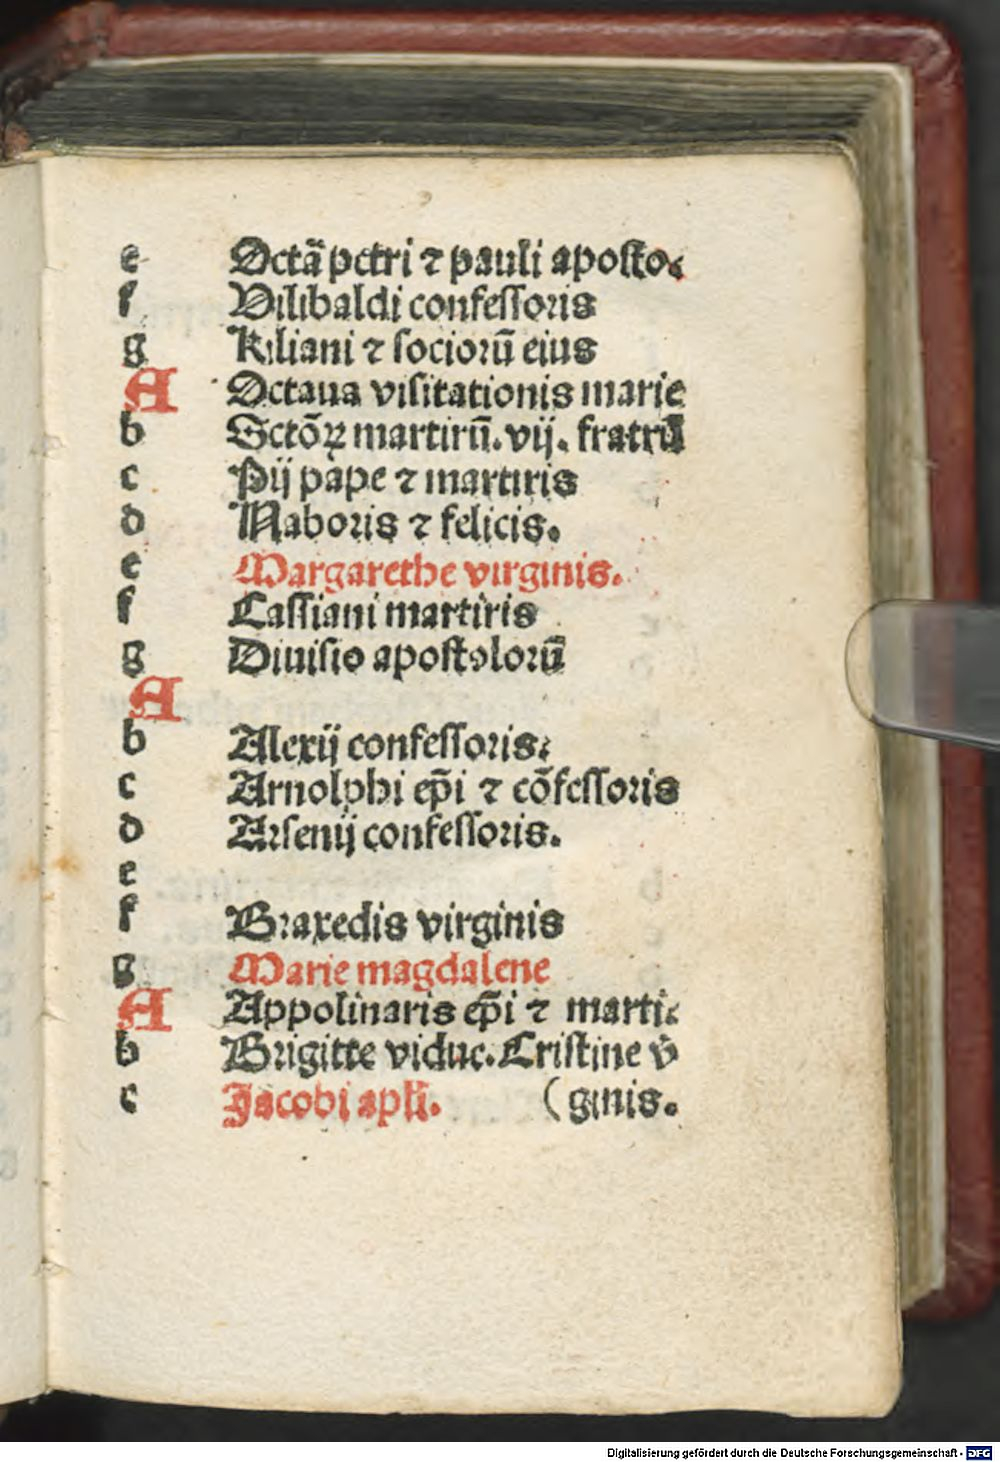 e Octā petri ⁊ pauli aposto.
f Vilibaldi confessoris
g Kiliani ⁊ sociorū eius
A Octaua visitationis marie
b Sctōꝝ martirū. vij. fratrū
c Pij pape ⁊ martiris
d Naboris ⁊ felicis.
e Margarethe virginis.
f Cassiani martiris
g Diuisio apostolorū
A
b Alexij confessoris.
c Arnolphi ep̄i ⁊ cōfessoris
d Arsenij confessoris.
e
f Braxedis virginis
g Marie magdalene
A Appolinaris ep̄i ⁊ marti.
b Brigitte vidue. Cristine v̄
c Jacobi apli. (ginis.
Digitalisierung gefördert durch die Deutsche Forschungsgemeinschaft - DFG